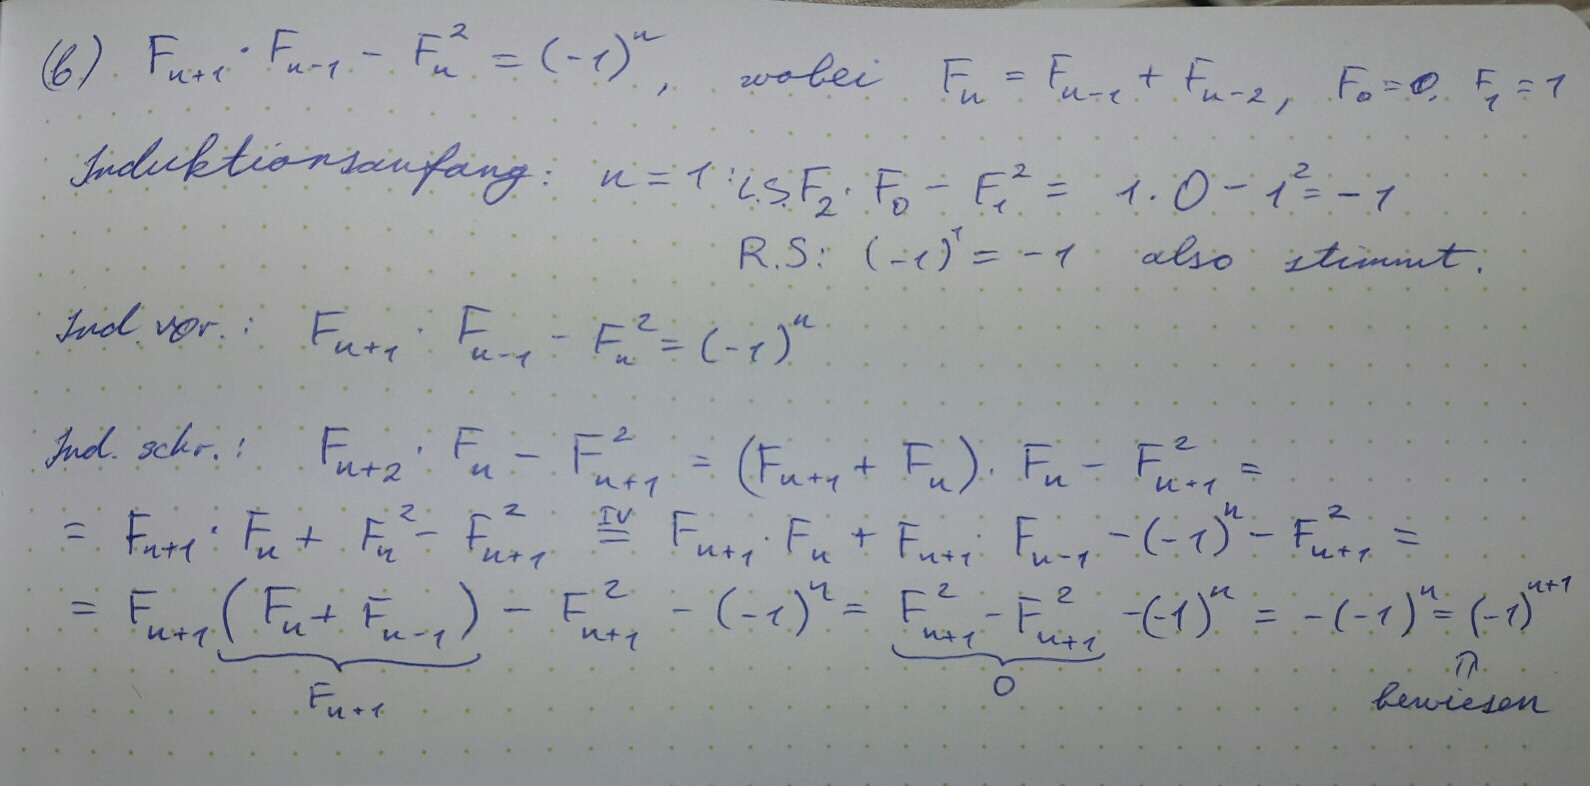 (b) F_{n+1} · F_{n-1} - F_n^2 = (-1)^n, wobei F_n = F_{n-1} + F_{n-2}, F_0 = 0, F_1 = 1
Induktionsanfang: n = 1: L.S. F_2 · F_0 - F_1^2 = 1 · 0 - 1^2 = -1
R.S: (-1)^1 = -1 also stimmt.
Ind. vor.: F_{n+1} · F_{n-1} - F_n^2 = (-1)^n
Ind. schr.: F_{n+2} · F_n - F_{n+1}^2 = (F_{n+1} + F_n) · F_n - F_{n+1}^2 =
= F_{n+1} · F_n + F_n^2 - F_{n+1}^2 =^{IV} F_{n+1} · F_n + F_{n+1} · F_{n-1} - (-1)^n - F_{n+1}^2 =
= F_{n+1} (F_n + F_{n-1}) - F_{n+1}^2 - (-1)^n = F_{n+1}^2 - F_{n+1}^2 - (-1)^n = -(-1)^n = (-1)^{n+1}
F_{n+1} 0 ⇑
bewiesen